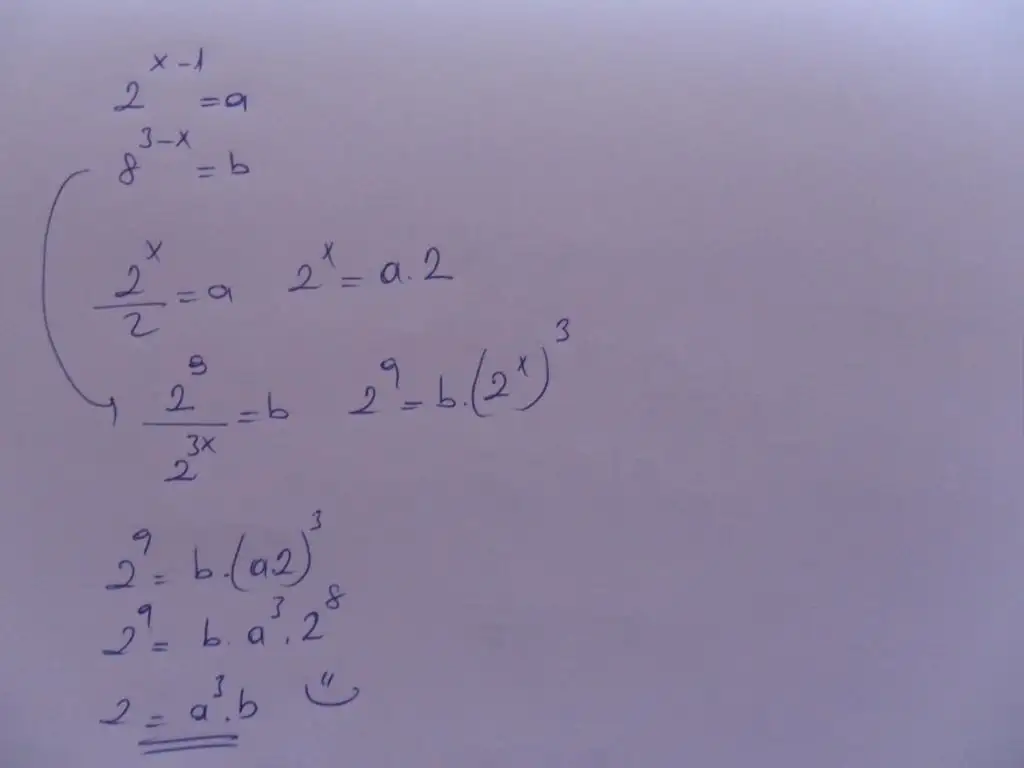 2^{x-1} = a
8^{3-x} = b
\frac{2^x}{2} = a   2^x = a.2
\frac{2^9}{2^{3x}} = b   2^9 = b.(2^x)^3
2^9 = b.(a2)^3
2^9 = b.a^3.2^8
2 = a^3.b